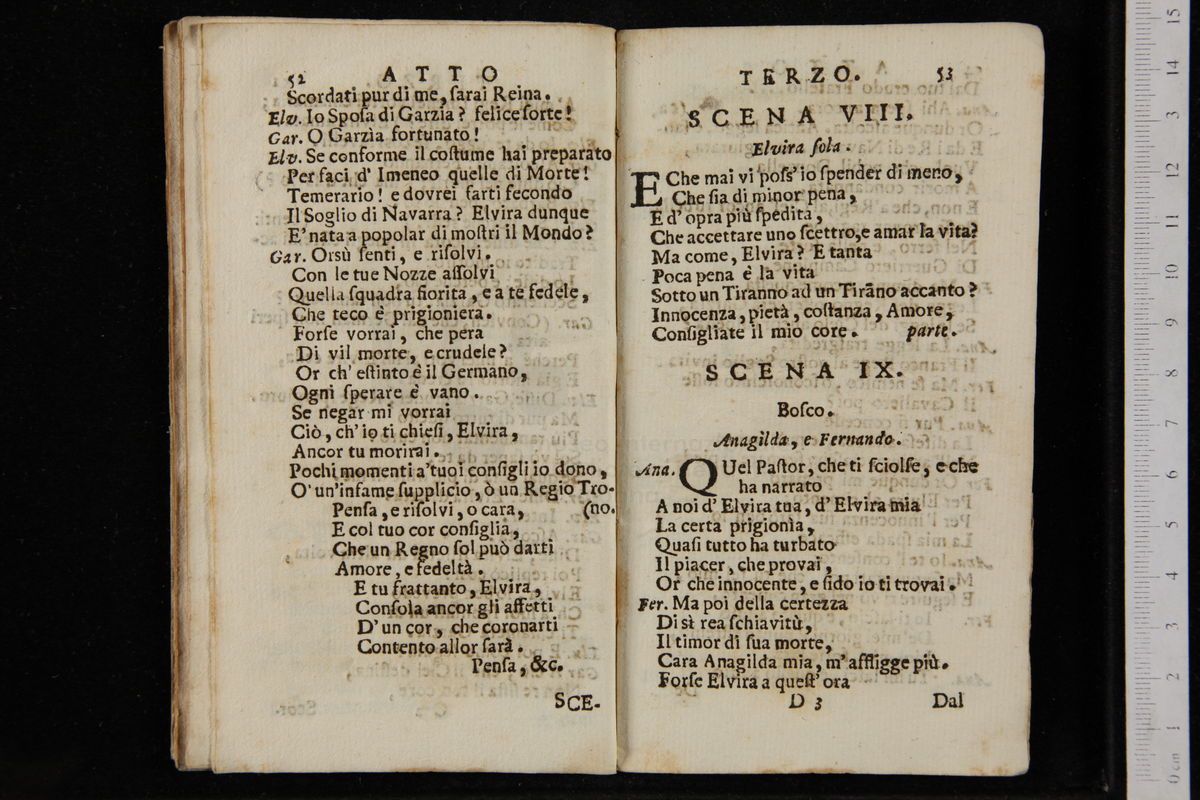 52 ATTO
Scordati pur di me, ſarai Reina.
Elv. Io Spoſa di Garzìa? felice ſorte!
Gar. O Garzìa fortunato!
Elv. Se conforme il coſtume hai preparato
Per faci d' Imeneo quelle di Morte!
Temerario! e dovrei farti fecondo
Il Soglio di Navarra? Elvira dunque
E' nata a popolar di moſtri il Mondo?
Gar. Orsù ſenti, e riſolvi.
Con le tue Nozze aſſolvi
Quella ſquadra fiorita, e a te fedele,
Che teco è prigioniera.
Forſe vorrai, che pera
Di vil morte, e crudele?
Or ch' eſtinto è il Germano,
Ogni ſperare è vano.
Se negar mi vorrai
Ciò, ch' io ti chieſi, Elvira,
Ancor tu morirai.
Pochi momenti a' tuoi conſigli io dono,
O' un' infame ſupplicio, ò un Regio Tro-
Penſa, e riſolvi, o cara, (no.
E col tuo cor conſiglia,
Che un Regno ſol può darti
Amore, e fedeltà.
E tu frattanto, Elvira,
Conſola ancor gli affetti
D' un cor, che coronarti
Contento allor ſarà.
Penſa, &c.
SCE-
TERZO. 53
SCENA VIII.
Elvira ſola.
E Che mai vi poſs' io ſpender di meno,
Che ſia di minor pena,
E d' opra più ſpedita,
Che accettare uno ſcettro, e amar la vita?
Ma come, Elvira? E tanta
Poca pena è la vita
Sotto un Tiranno ad un Tirãno accanto?
Innocenza, pietà, coſtanza, Amore,
Conſigliate il mio core. parte.
SCENA IX.
Boſco.
Anagilda, e Fernando.
Ana. QUel Paſtor, che ti ſciolſe, e che
ha narrato
A noi d' Elvira tua, d' Elvira mia
La certa prigionìa,
Quaſi tutto ha turbato
Il piacer, che provai,
Or che innocente, e fido io ti trovai.
Fer. Ma poi della certezza
Di sì rea ſchiavitù,
Il timor di ſua morte,
Cara Anagilda mia, m' affligge più.
Forſe Elvira a queſt' ora
D 3 Dal
15
14
13
12
11
10
9
8
7
6
5
4
3
2
1
0 cm